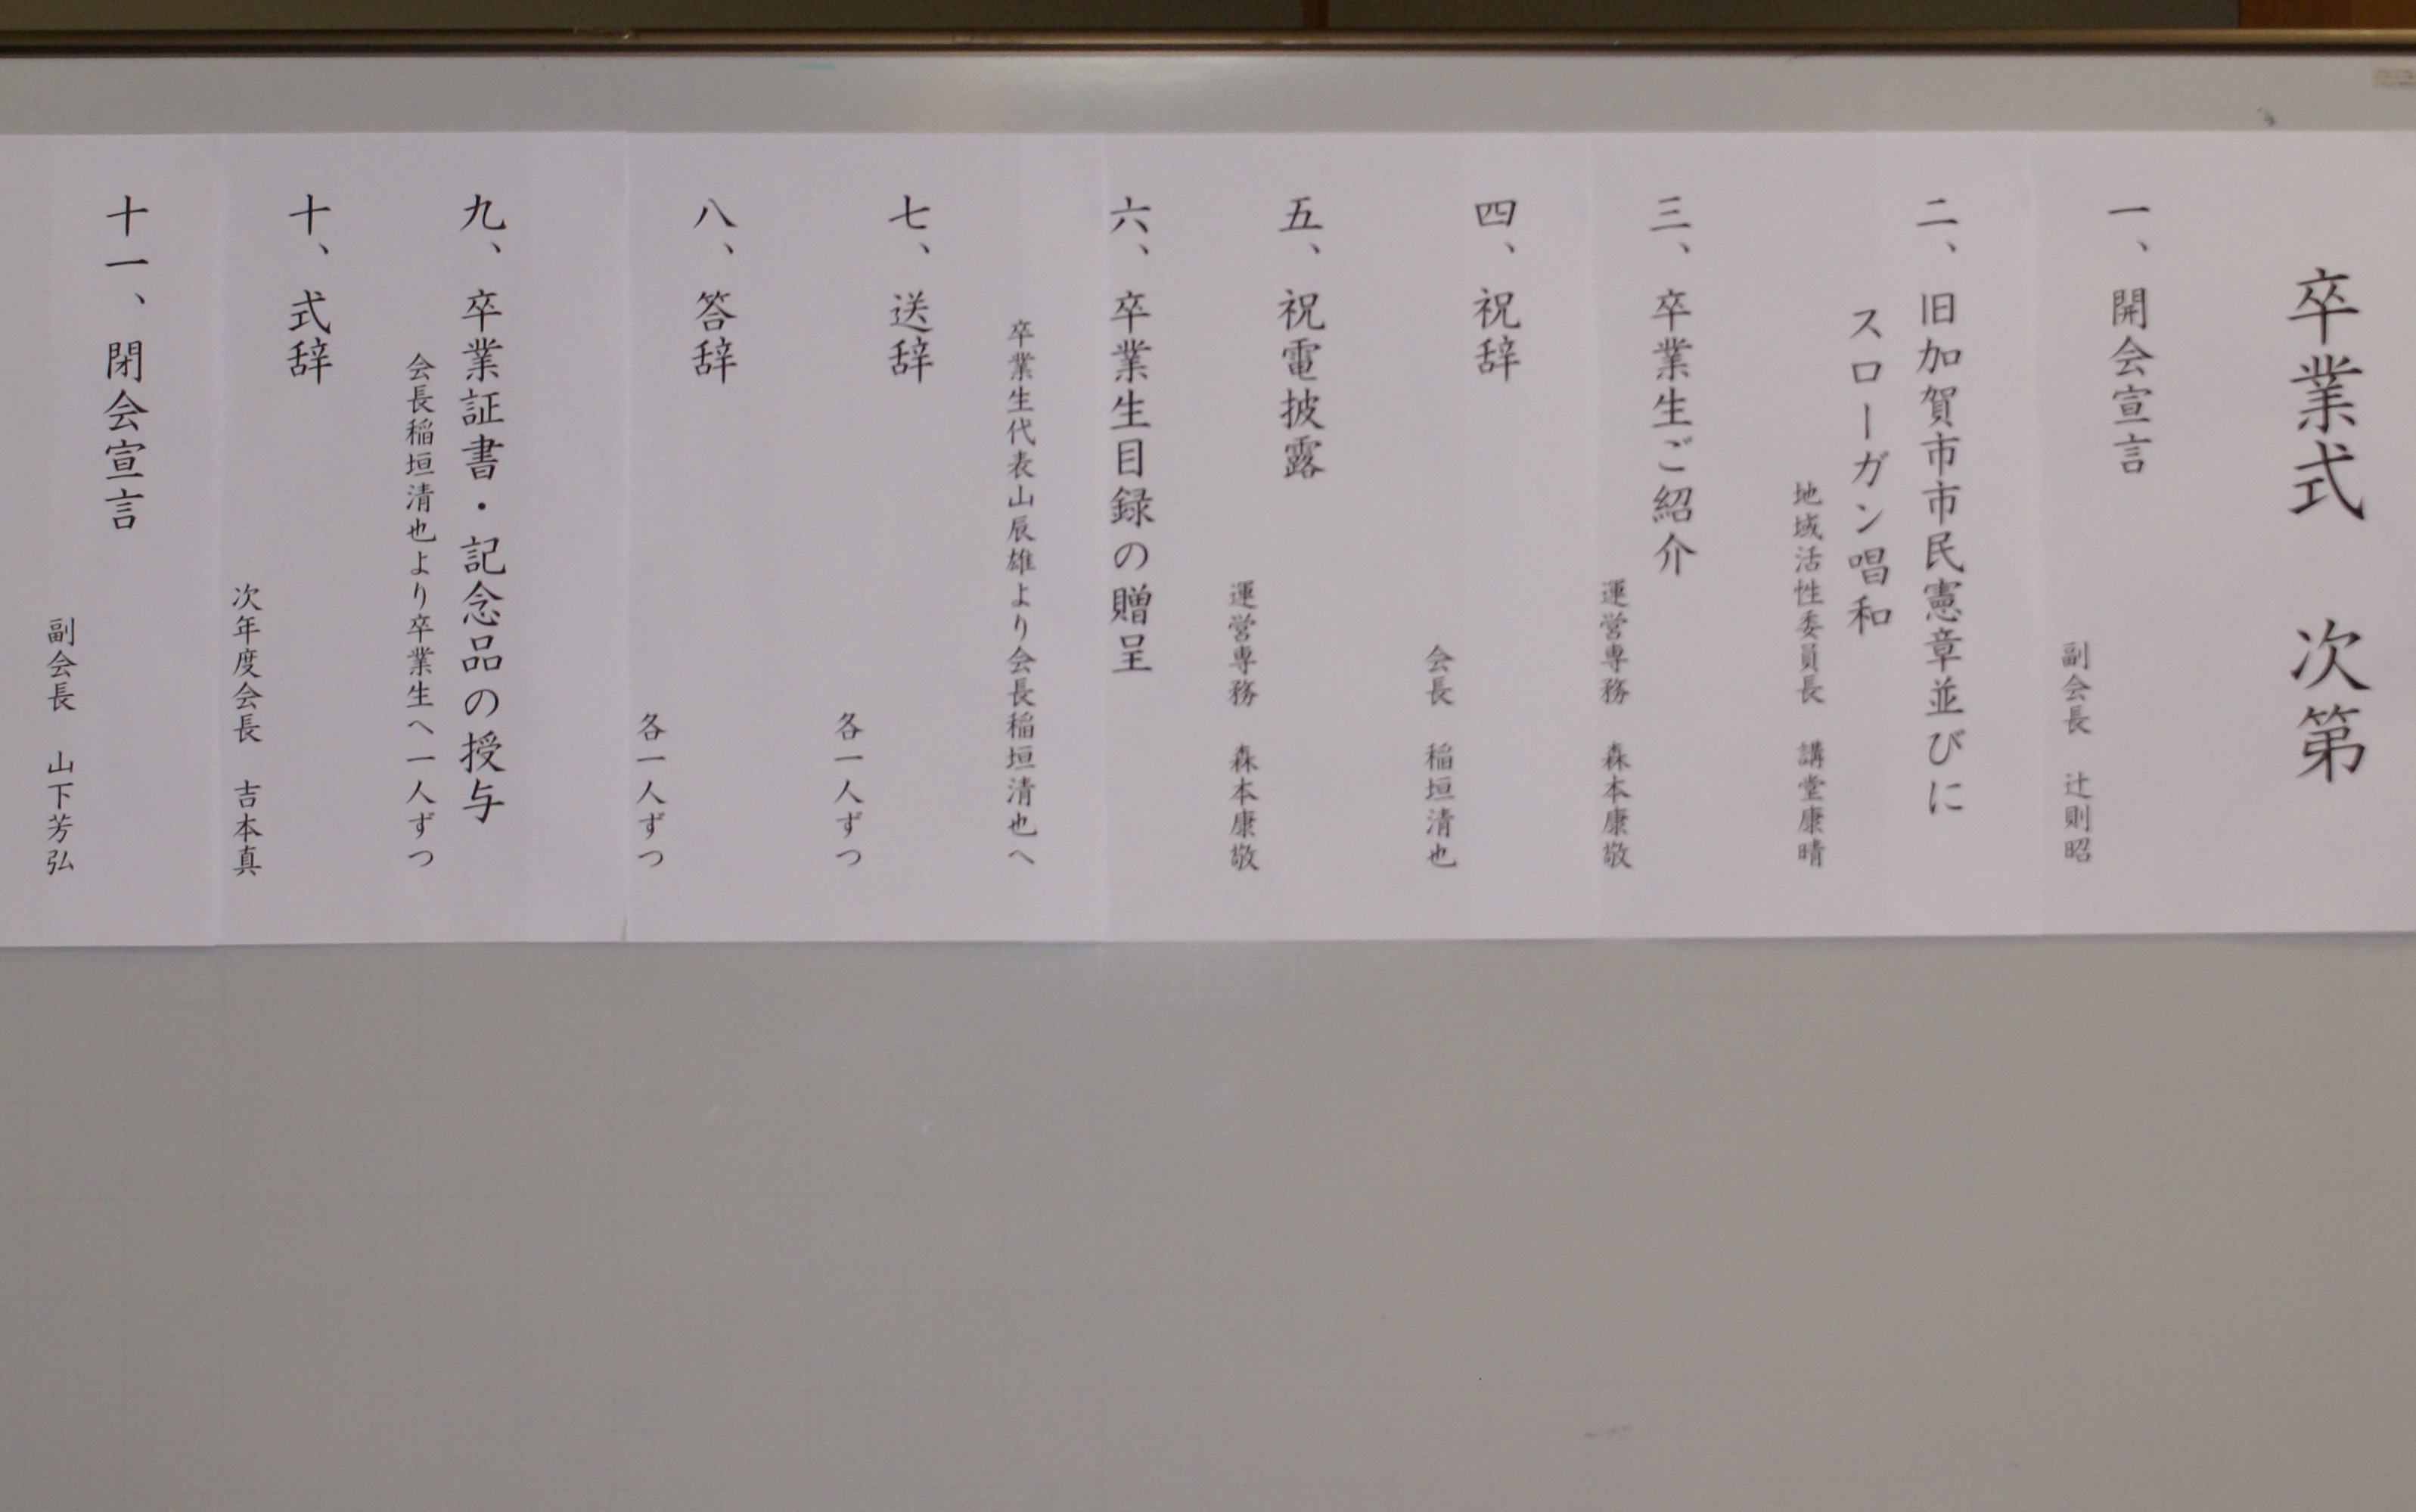 卒業式　次第
一、開会宣言
副会長　辻則昭
二、旧加賀市市民憲章並びに
スローガン唱和
地域活性委員長　講堂康晴
三、卒業生ご紹介
運営専務　森本康敬
四、祝辞
会長　稲垣清也
五、祝電披露
運営専務　森本康敬
六、卒業生目録の贈呈
卒業生代表山辰雄より会長稲垣清也へ
七、送辞
各一人ずつ
八、答辞
各一人ずつ
九、卒業証書・記念品の授与
会長稲垣清也より卒業生へ一人ずつ
十、式辞
次年度会長　吉本真
十一、閉会宣言
副会長　山下芳弘